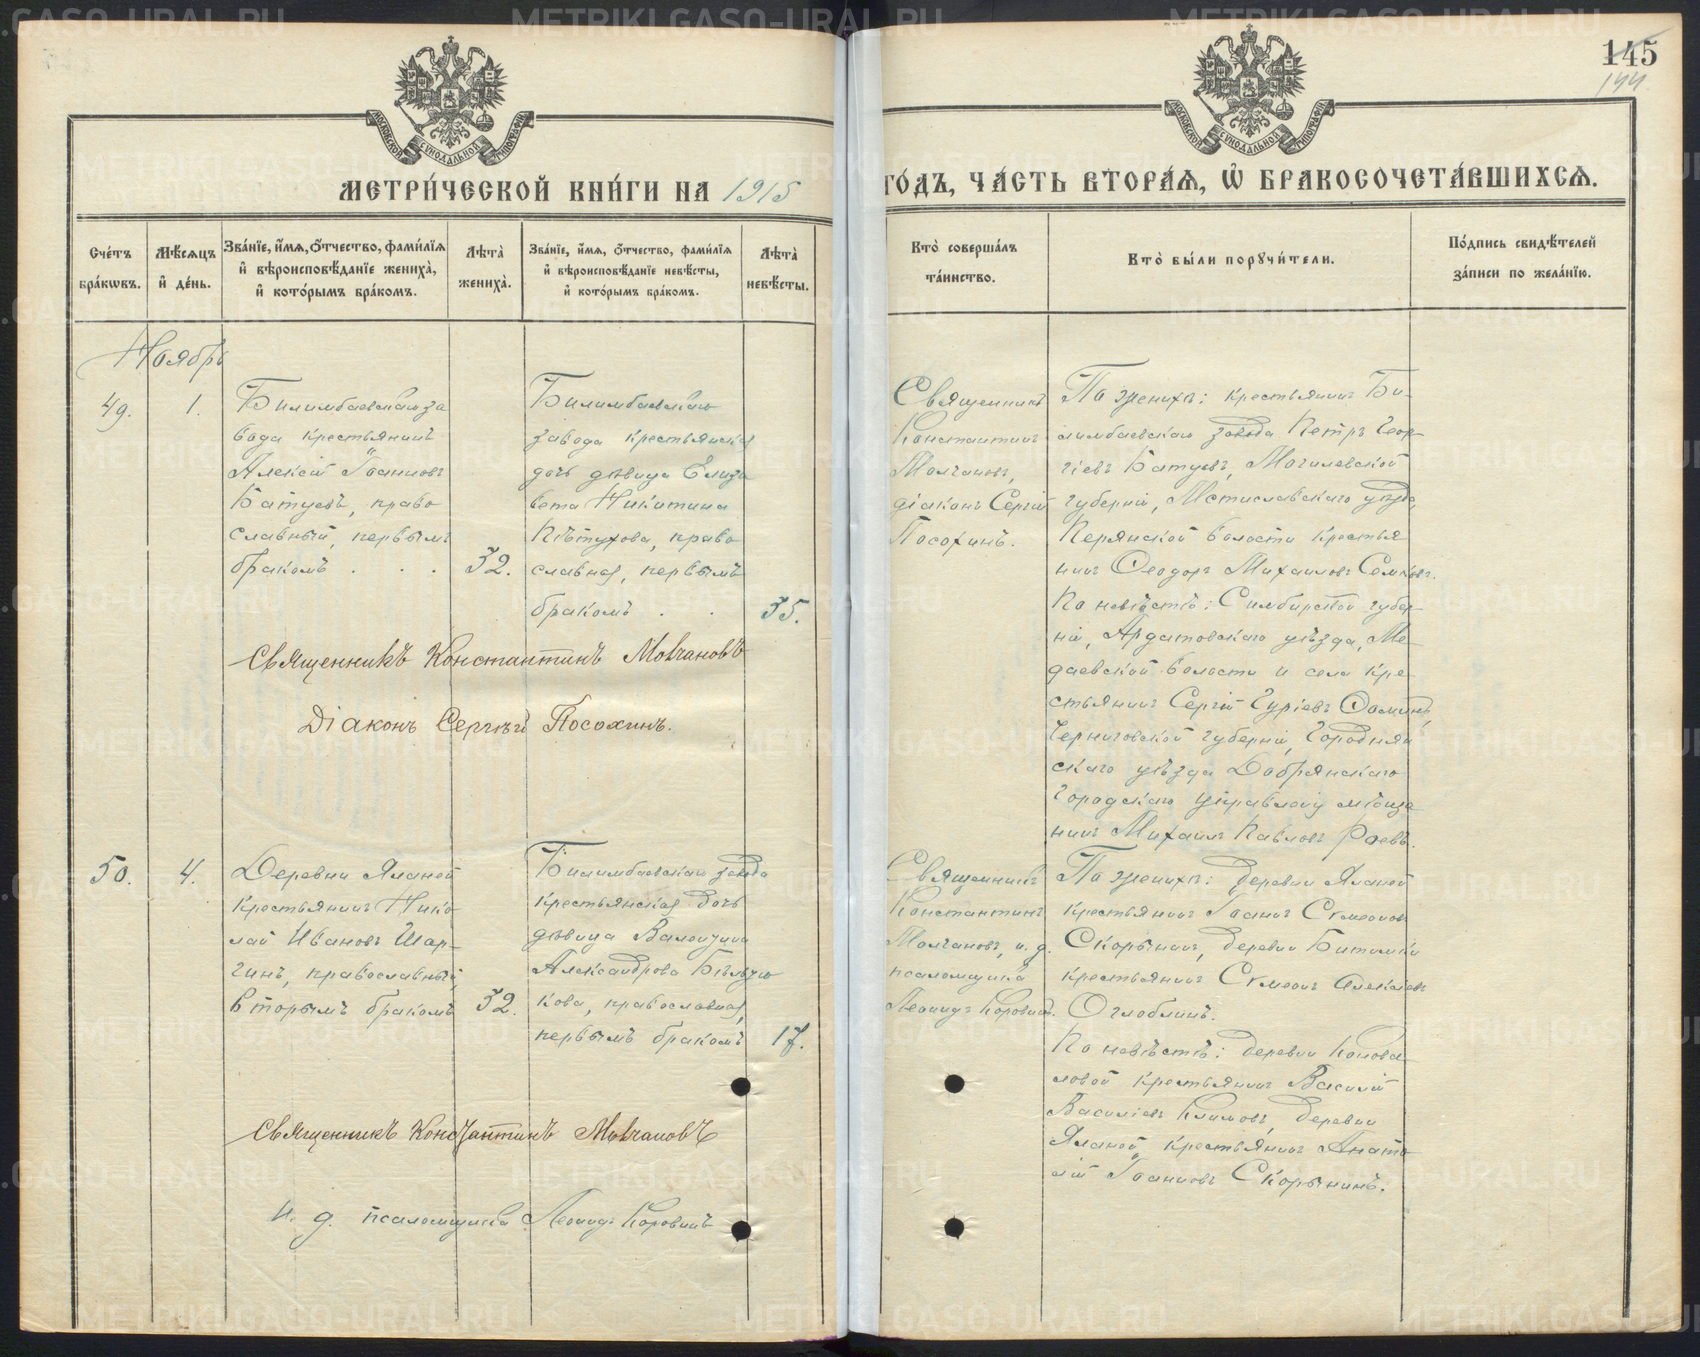 145
144
МОСКОВСКОЙ СѴНОДАЛЬНОЙ ТИПОГРАФІИ
МОСКОВСКОЙ СѴНОДАЛЬНОЙ ТИПОГРАФІИ
МЕТРИ́ЧЕСКОЙ КНИ́ГИ НА 1915
ГО́ДЪ, ЧА́СТЬ ВТОРА́Ѧ, Ѽ БРАКОСОЧЕТА́ВШИХСѦ.
Сче́тъ бра́кѡвъ.
Мѣ́сѧцъ и҆ де́нь.
Зва́нїе, и҆́мѧ, ѻ҆́тчество, фами́лїѧ и҆ вѣроисповѣ́данїе жениха̀, и҆ кото́рымъ бра́комъ.
Лѣта̀ жениха̀.
Зва́нїе, и҆́мѧ, ѻ҆́тчество, фами́лїѧ и҆ вѣроисповѣ́данїе невѣ́сты, и҆ кото́рымъ бра́комъ.
Лѣта̀ невѣ́сты.
Кто̀ соверша́лъ та́инство.
Кто̀ бы́ли порꙋчи́тели.
По́дпись свидѣ́телей за́писи по жела́нїю.
Ноябрь
49.
1.
Билимбаевскаго за
вода крестьянинъ
Алексій Іоанновъ
Батуевъ, право
славный, первымъ
бракомъ . . .
32.
Билимбаевскаго
завода крестьянская
дочь дѣвица Елиза
вета Никитина
Пѣтухова, право
славная, первымъ
бракомъ . .
35.
Священникъ
Константинъ
Молчановъ,
діаконъ Сергій
Посохинъ.
По женихѣ: крестьянинъ Би-
лимбаевскаго завода Петръ Геор-
гіевъ Батуевъ, Могилевской
губерніи, Мстиславскаго уѣзда,
волости крестья
нинъ Ѳеодоръ Михаиловъ
По невѣстѣ: Симбирской губер-
ніи, Ардатовскаго уѣзда, Ме-
даевской волости и села кре-
стьянинъ Сергій Гуріевъ Ѳоминъ,
Черниговской губерніи, Городня
скаго уѣзда Добрянскаго
Городскаго мѣща
нинъ Михаилъ Павловъ Раевъ.
Священникъ Константинъ Молчановъ
Діаконъ Сергѣй Посохинъ.
50.
4.
Деревни Яланой
крестьянинъ Нико
лай Ивановъ Шар-
гинъ, православный,
вторымъ бракомъ
32.
Билимбаевскаго завода
крестьянская дочь
дѣвица Валентина
Александрова
кова, православная,
первымъ бракомъ
17.
Священникъ
Константинъ
Молчановъ, и. д.
псаломщика
Леонидъ Коровинъ.
По женихѣ: деревни Яланой
крестьянинъ Іоаннъ Сѵмеоновъ
Скорынинъ, деревни Битимки
крестьянинъ Сѵмеонъ Алексѣевъ
Оглоблинъ.
По невѣстѣ: деревни Конова
ловой крестьянинъ Василій
Василіевъ Климовъ, деревни
Яланой крестьянинъ Анато
лій Іоанновъ Скорынинъ.
Священникъ Константинъ Молчановъ
И. д. псаломщика Леонидъ Коровинъ
METRIKI.GASO-URAL.RU